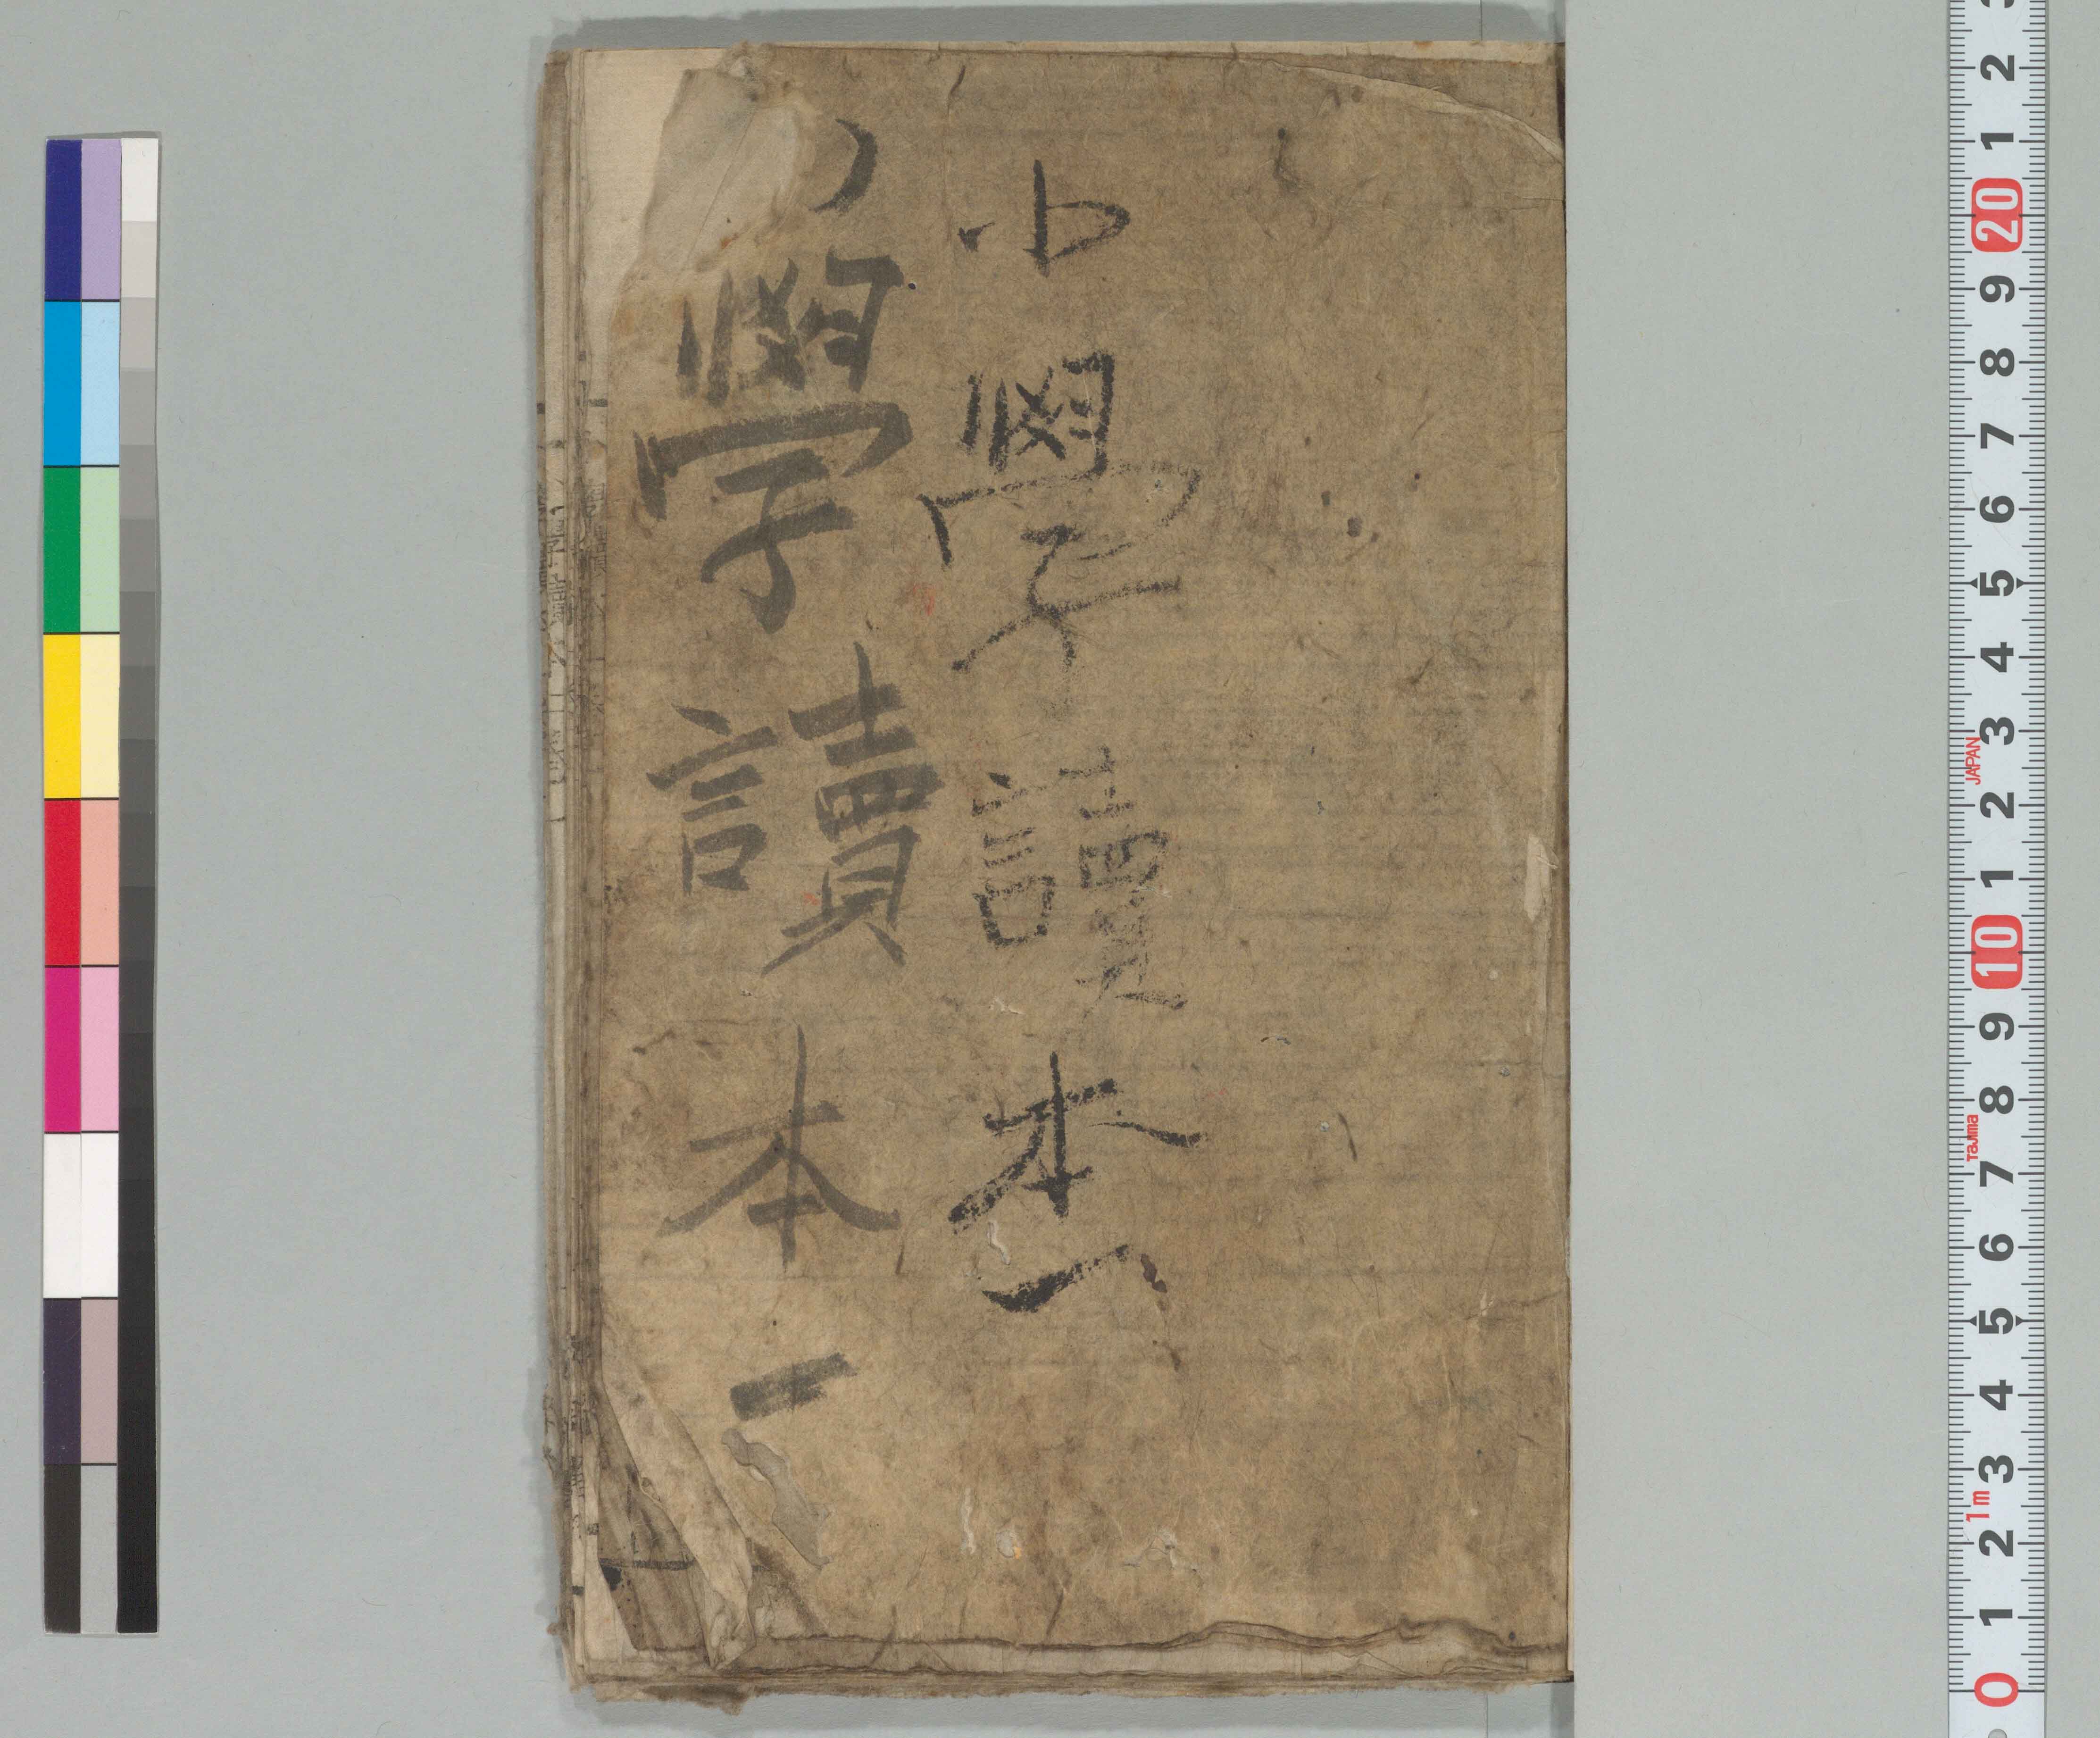 小學讀本一
學讀本一
2
1
20
9
8
7
6
5
4
3
2
1
10
9
8
7
6
5
4
3
2
1
0
JAPAN
Tajima
1m